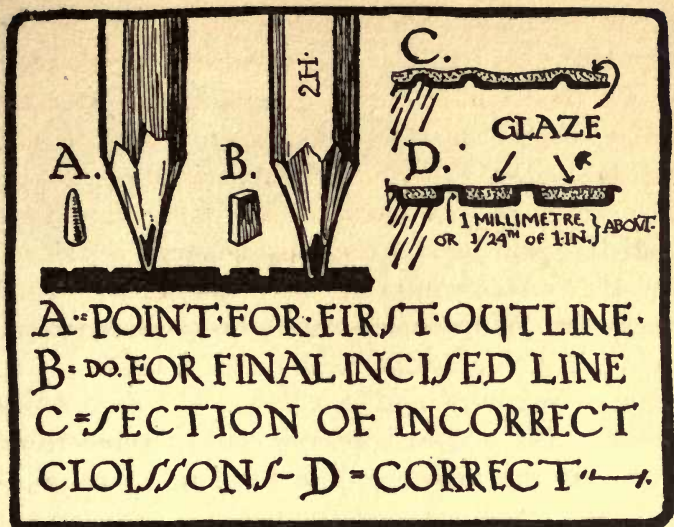 2H.
A.
B.
C.
GLAZE
D.
1 MILLIMETRE
OR 1/24TH OF 1·IN.} ABOUT.
A=POINT·FOR·FIRST·OUTLINE·
B=DO. FOR FINAL INCISED LINE
C=SECTION OF INCORRECT
CLOISSONS-D=CORRECT